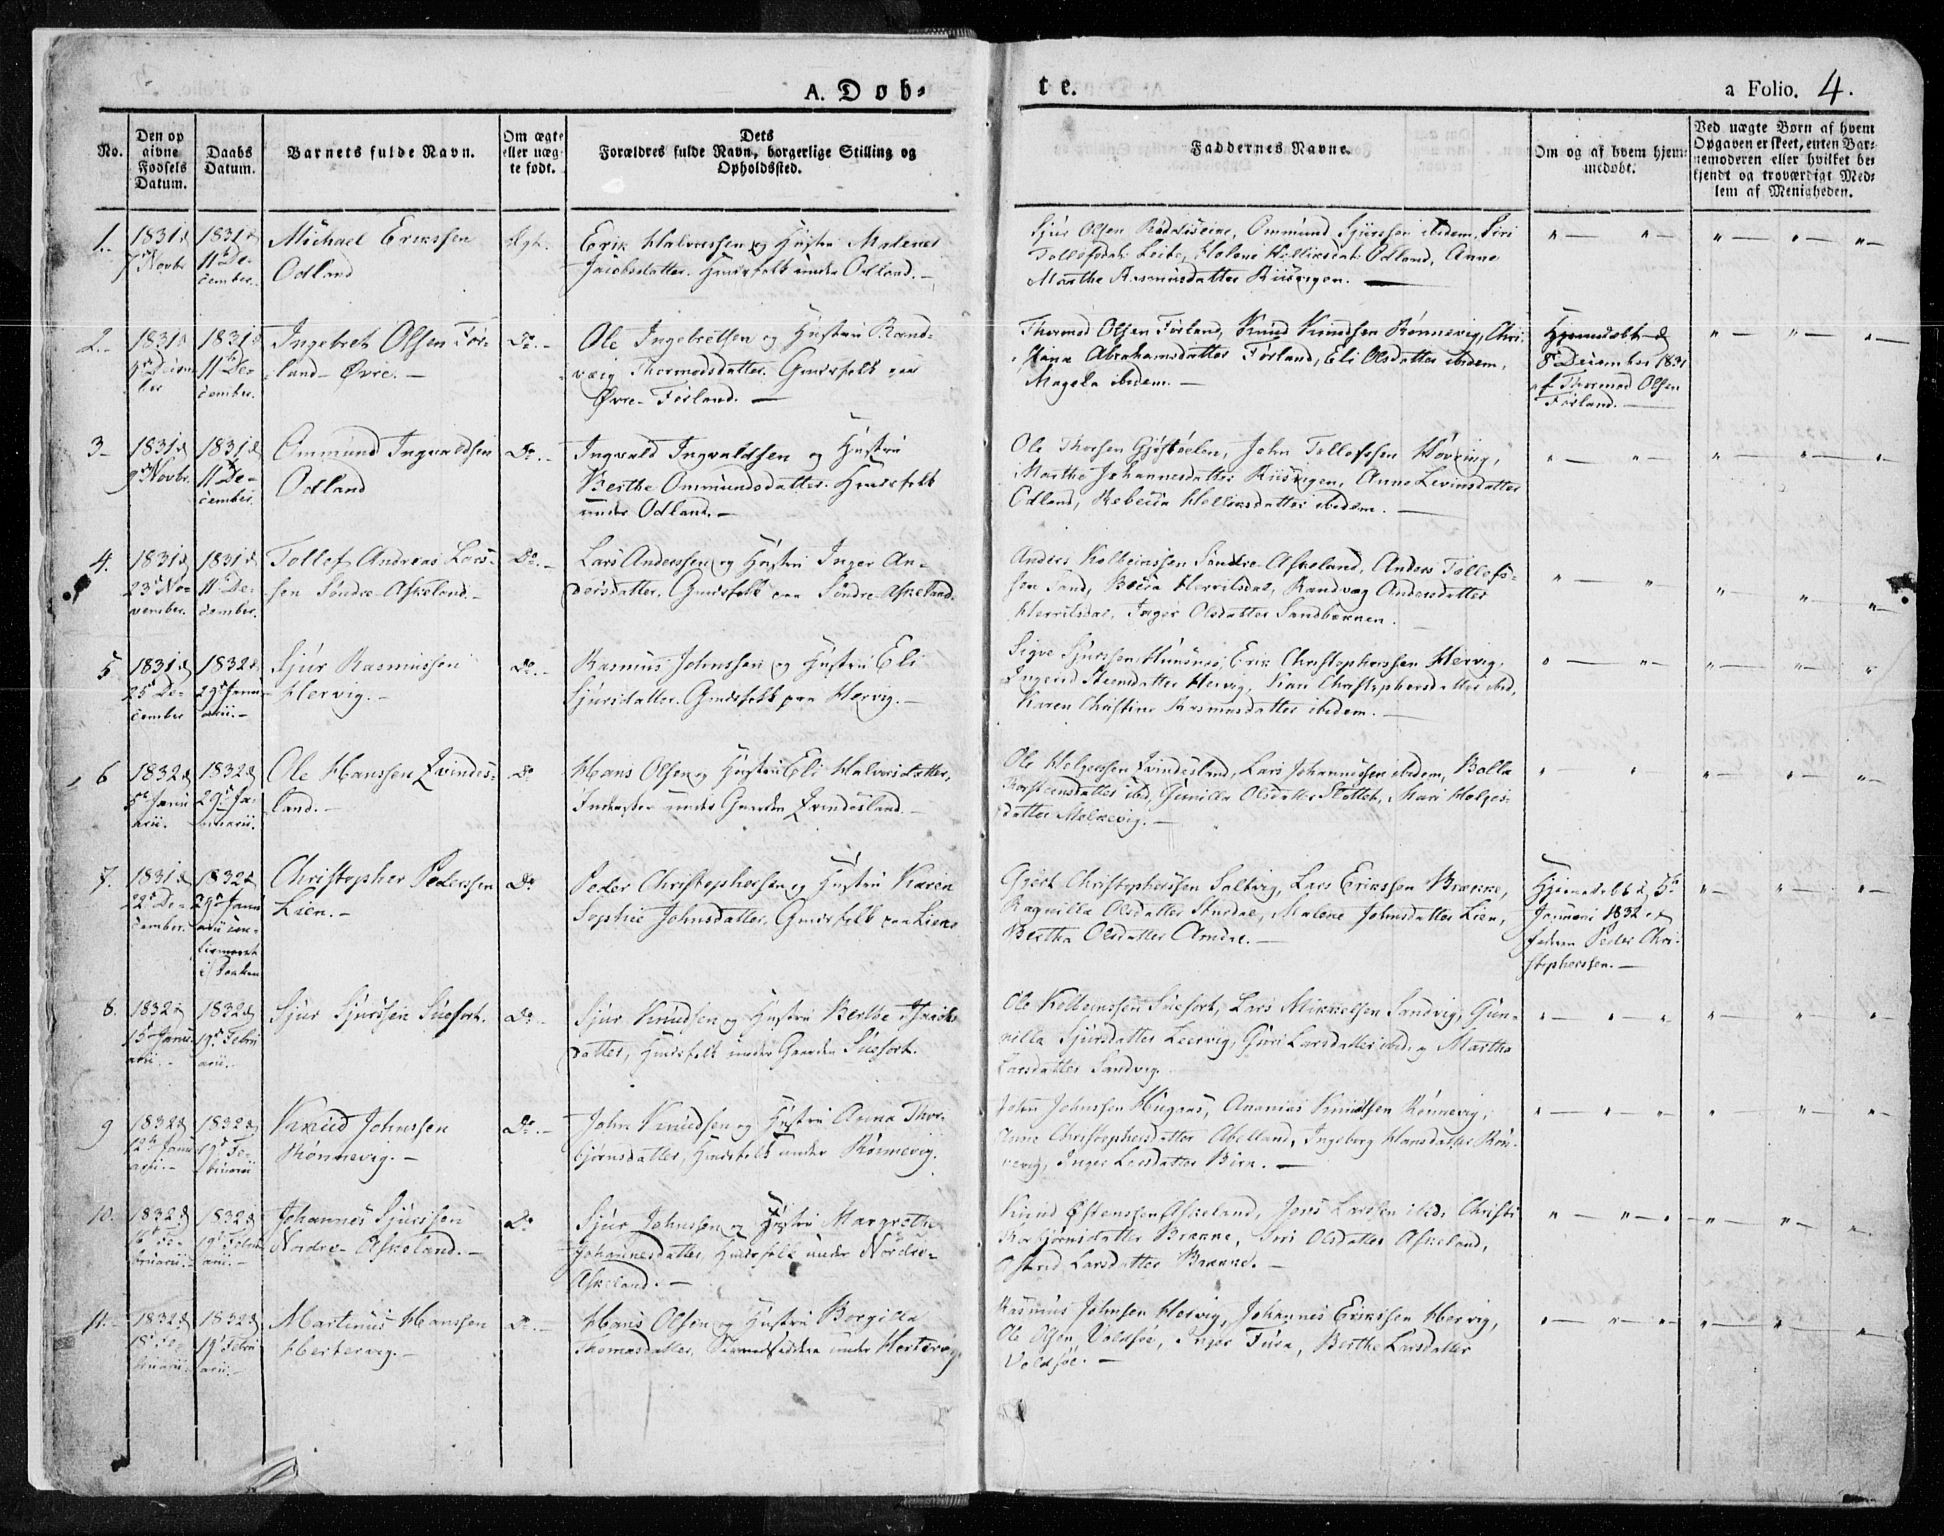 A. Døb-
te.
a Folio. 4.
No.
Den op
givne
Fødsels
Datum.
Daabs
Datum.
Barnets fulde Navn.
Om ægte
eller uæg-
te født.
Dets
Forældres fulde Navn, borgerlige Stilling og
Opholdssted.
Faddernes Navne.
Om og af hvem hjem-
medøbt.
Ved uægte Børn af hvem
Opgaven er skeet, enten Bar-
nemoderen eller hvilket be-
kjendt og troværdigt Med-
lem af Menigheden.
1.
1831 d
7 Novbr
1831 d
11 De-
cember.
Michael Erikssen
Odland
Ægt.
Erik Halvorssen og Hustru Malene
Jacobsdatter. Huusfolk under Odland.
Sjur Olsen Ommund Sjurssen ibidem, Siri
Odland, Anne
Marthe Rasmusdatter Riisvigen.
2.
1831 d
Decem-
ber
1831 d
11 De-
cember.
Ingebret Olsen Før-
land Øvre.
Do.
Ole Ingebretsen og Hustru Rand-
væig Thormodsdatter. Gaardfolk paa
Øvre Førland.
Thormod Olsen Førland, Knud Knudsen Rønnevig, Chri-
stiana Abrahamsdatter Førland, Eli Olsdatter ibidem,
Magela ibidem.
Hjemdøbt d
8 December 1831
af Thormod Olsen
Førland.
3
1831 d
9 Novbr.
1831 d
11 De-
cember.
Ommund Ingvaldsen
Odland
Do.
Ingvald Ingvaldsen og Hustru
Berthe Ommundsdatter. Huusfolk
under Odland.
Ole Thorsen John Tollefssen Høvring,
Marthe Johannesdatter Riisvigen, Anne Levinsdatter
Odland, Rebecca ibidem.
4.
1831 d
23 No-
vember.
1831 d
11 De-
cember.
Tollef Andreas Lars-
sen Søndre Askeland.
Do.
Lars Anderssen og Hustru Inger An-
dersdatter. Gaardfolk paa Søndre Askeland.
Anders Kolbeinssen Søndre Askeland, Anders Tollefs-
sen Sand, Randvæg Andersdatter
Inger Olsdatter
5
1831 d
25 De-
cember
1832 d
29 Janu-
arii.
Sjur Rasmussen
Hervig.
Do.
Rasmus Johnssen og Hustru Eli
Sjursdatter. Gaardfolk paa Hervig.
Sigve Sjurssen Erik Christopherssen Hervig,
Ingerid Hervig, Kari Christophersdatter ibid,
Karen Christine Rasmusdatter ibidem.
6
1832 d
5 Janu
arii.
1832 d
29 Ja-
nuarii.
Ole Hanssen Qvindes-
land.
Do
Hans Olsen og Hustru Eli Halvorsdatter,
Inderster under Gaarden Qvindesland.
Ole Helgessen Qvindesland, Lars Johannessen ibidem, Bolla
ibid, Gunilla Olsdatter Slottet, Kari Helges-
datter Melkevig.
7.
1831 d
22 De-
cember.
1832 d
29 Janu
arii con-
firmeret
i Daaben
Christopher Pederssen
Lien.
Do
Peder Christopherssen og Hustru Karen
Sophie Johnsdatter. Gaardfolk paa Lien.
Gjert Christopherssen Saltvig, Lars Erikssen Brække,
Ragnilla Olsdatter Malene Johnsdatter Lien,
Bertha Olsdatter Amdal.
Hjemdøbt d 5
Januari 1832 af
faderen Peder Chri-
stopherssen.
8.
1832 d
15 Janu
arii.
1832 d
19 Febru
arii.
Sjur Sjurssen
Do.
Sjur Knudsen og Hustru Berthe
datter, Huusfolk under Gaarden
Ole Kolbeinssen Lars Mikkelsen Sandvig, Gun-
nilla Sjursdatter Leervig, Guri Larsdatter ibid. og Martha
Larsdatter Sandvig.
9
1832 d
12 Janu
arii.
1832 d
19 Fe-
bruarii
Knud Johnssen
Rønnevig.
Do.
John Knudsen og Hustru Anna Thor-
bjørnsdatter, Huusfolk under Rønnevig.
John Johnssen Ananias Knudssen Rønnevig,
Anne Christophersdatter Abelland, Ingeborg Hansdatter Røn-
nevig, Inger Larsdatter
10.
1832 d
Fe-
bruarii.
1832 d
19 Febru
arii.
Johannes Sjurssen
Nordre Askeland.
Do
Sjur Johnssen og Hustru Margrethe
Johannesdatter, Huusfolk under Nordre
Askeland.
Knud Østenssen Askeland, Jens Larssen ibid. Christi
Torbjørnsdatter Brække, Siri Olsdatter Askeland,
Astrid Larsdatter Brække.
11.
1832 d
18 Fe-
bruarii.
1832 d
19 Febru
arii.
Martinus Hanssen
Hertervig.
Do.
Hans Olsen og Hustru Borgilla
Thomasdatter, Strandsiddere under Hertervig
Rasmus Johnsen Hervig, Johannes Erikssen Hervig,
Ole Olsen Voldsøe, Inger Berthe Larsdatter
Voldsøe.